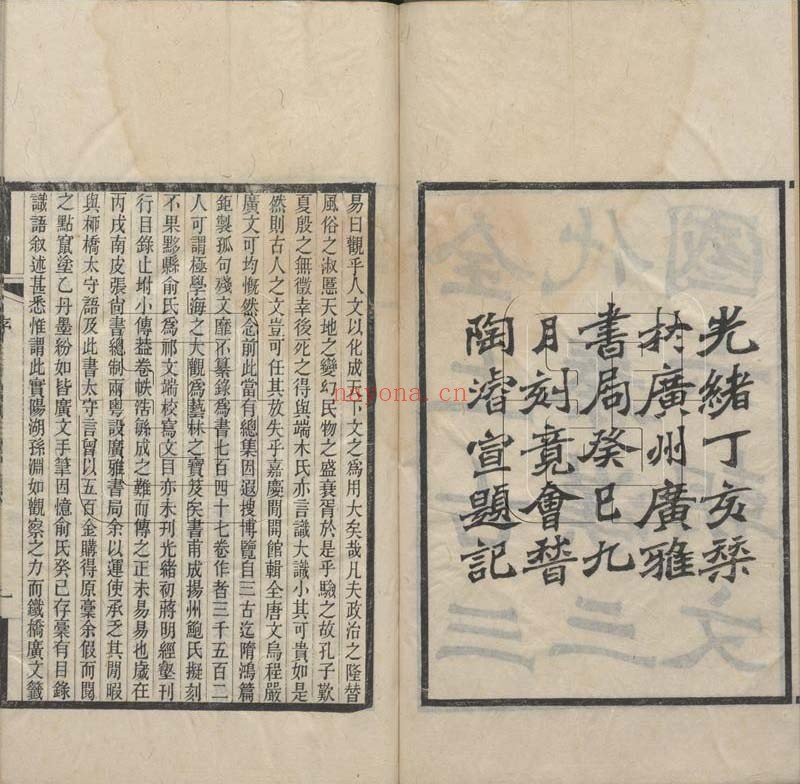 光緒丁亥栞
於廣州廣雅
書局癸巳九
月刻竟會稽
陶濬宣題記
易曰觀乎人文以化成天下文之爲用大矣哉凡夫政治之隆替
風俗之淑慝天地之變幻民物之盛衰胥於是乎驗之故孔子歎
夏殷之無徵幸後死之得與端木氏亦言識大識小其可貴如是
然則古人之文豈可任其放失乎嘉慶閒開館輯全唐文烏程嚴
廣文可均慨然念前此當有總集因遐搜博覽自三古迄隋鴻篇
鉅製孤句殘文靡不纂錄爲書七百四十七卷作者三千五百二
人可謂極學海之大觀爲藝林之寶笈矣書甫成揚州鮑氏擬刻
不果黟縣俞氏爲祁文端校寫文目亦未刊光緒初蔣明經壑刊
行目錄止坿小傳葢卷帙浩緐成之難而傳之正未易易也歲在
丙戌南皮張尙書總制兩粵設廣雅書局余以運使承乏其閒暇
與栁橋太守語及此書太守言曾以五百金購得原稾余假而閱
之點竄塗乙丹墨粉如皆廣文手筆因憶俞氏癸巳存稾有目錄
識語叙述甚悉惟謂此實陽湖孫淵如觀察之力而鐵橋廣文籤
序
一
nayona.cn